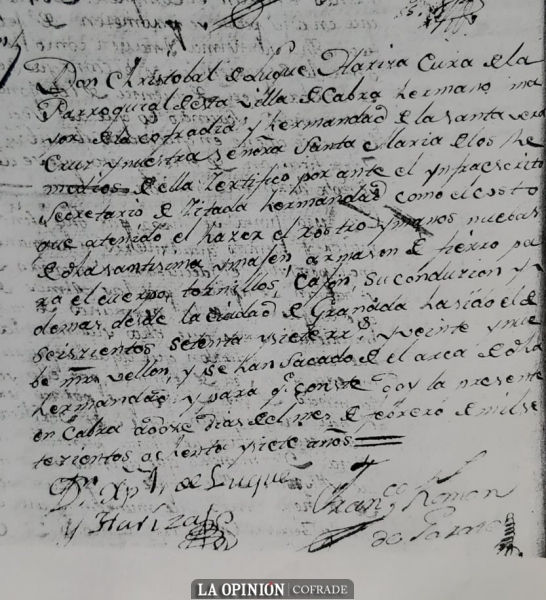 Don Christobal de Luque Hariza Cura de la
Parroquial de esta Villa de Cabra hermano ma
yor de la cofradia y hermandad de la santa vera
Cruz y nuestra Señora Santa Maria de los Re
medios de ella Zertifico por ante el ynfraescrito
Secretario de Zitada hermandad como el costo
que atenido el hazer el rostro y manos nuebas
de dha santisima ymajen, armason de fierro pa
ra el cuerpo, tornillos, Cajon, su condurion y
demas desde la ciudad de Granada ha sido el de
seiszientos setenta y siete rrs y veinte y nue
be mrs vellon, y se han sacado de el arca de dha
hermandad, y para q conste doy la presente
en Cabra a doze dias de el mes de febrero de mil se
tezientos ochenta y siete años
Dn Xptl de Luque
y Hariza
Franco Roman
de
LA OPINIÓN COFRADE